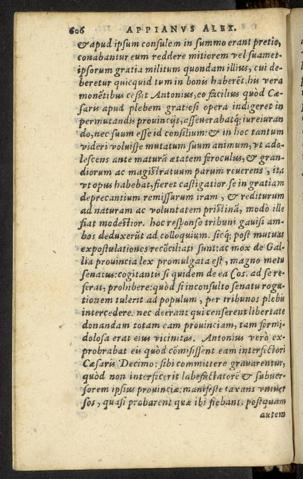 606 APPIANVS ALEX.
& apud ipsum consulem in summo erant pretio,
conabantur eum reddere mitiorem vel suamet-
ipsorum gratia militum quondam illius, cui de-
beretur quicquid tum in bonis haberēt. his vera
monētibus cessit Antonius, eo facilius quòd Cæ-
saris apud plebem gratiosi opera indigeret in
permutandis prouincijs, asseuerabatq; iureiuran
do, nec suum esse id consilium: & in hoc tantum
videri voluisse mutatum suum animum, vt ado-
lescens ante maturā ætatem feroculus, & gran-
diorum ac magistratuum parum reuerens, ita
vt opus habebat, fieret castigatior se in gratiam
deprecantium remissurum iram, & rediturum
ad naturam ac voluntatem pristinā, modò ille
fiat modestior. hoc responso tribuni gauisi am-
bos deduxerūt ad colloquium. sicq; post mutuas
expostulationes recōciliati sunt: ac mox de Gal-
lia prouincia lex promulgata est, magno metu
senatus: cogitanti si quidem de ea Cos. ad se re-
ferat, prohibere: quòd si inconsulto senatu roga-
tionem tulerit ad populum, per tribunos plebis
intercedere. nec deerant qui censerent libertate
donandam totam eam prouinciam, tam formi-
dolosa erat eius vicinitas. Antonius verò ex-
probrabat eis quòd cōmisissent eam interfectori
Cæsaris Decimo: sibi committere grauarentur,
quòd non interfecerit labefactatorē & subuer-
sorem ipsius prouinciæ: manifestè taxans vniuer
sos, quasi probarent quæ ibi fiebant. postquam
autem